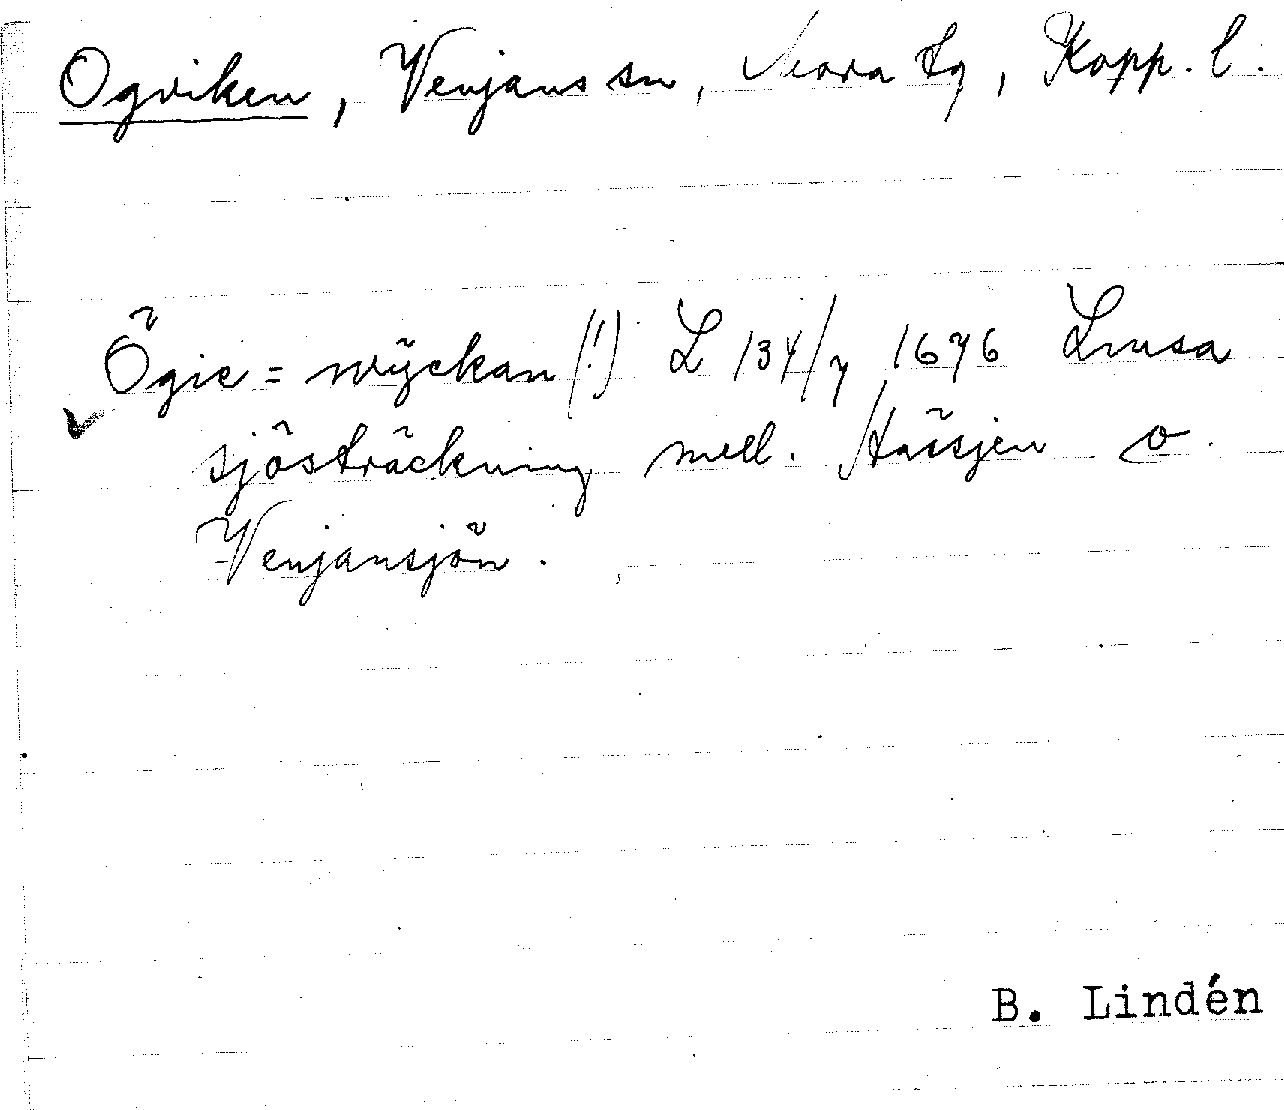 Ogviken, Venjans sn, Mora tg, Kopp. l.
Ögie = wÿckan (!) L 134/7 1676 Lmsa
sjösträckning mell. Håssjen o.
Venjansjön.
B. Lindén